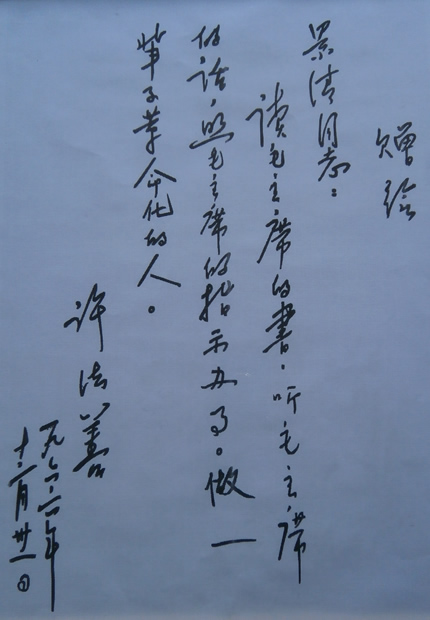 赠给
景清同志：
读毛主席的书，听毛主席
的话，照毛主席的指示办事。做一
辈子革命化的人。
许法善
一九六六年
十二月卅一日